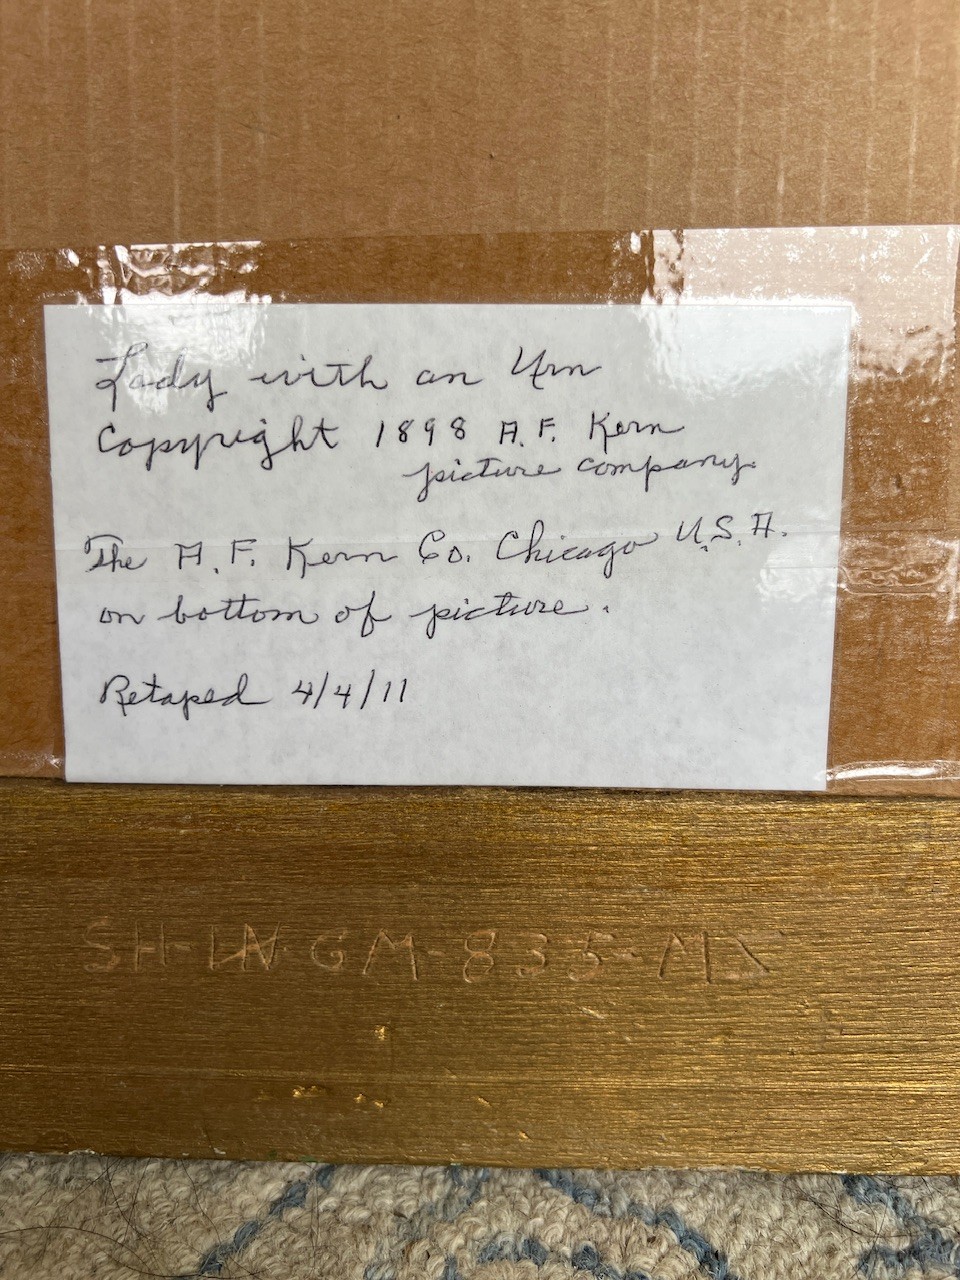 Lady with an Urn
Copyright 1898 A.F. Kern
picture company.
The A.F. Kern Co. Chicago U.S.A.
on bottom of picture.
Retaped 4/4/11
SH-LN-GM-835-MJ